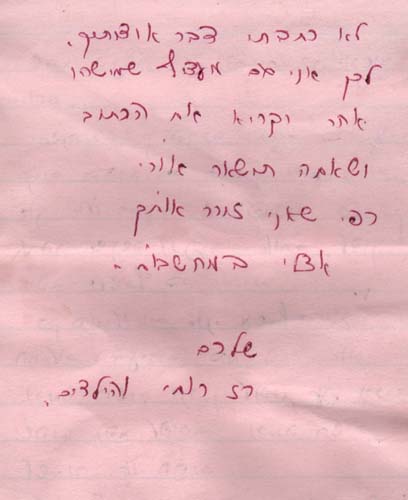 לא כתבתי דבר אודותיך,
לכן אני גם מעדיף שמישהו
אחר יקריא את הכתוב
ושאתה תשאר אורי
כפי שאני זוכר אותך
אצלי במחשבה.
שלכם
רז רותי והילדים.